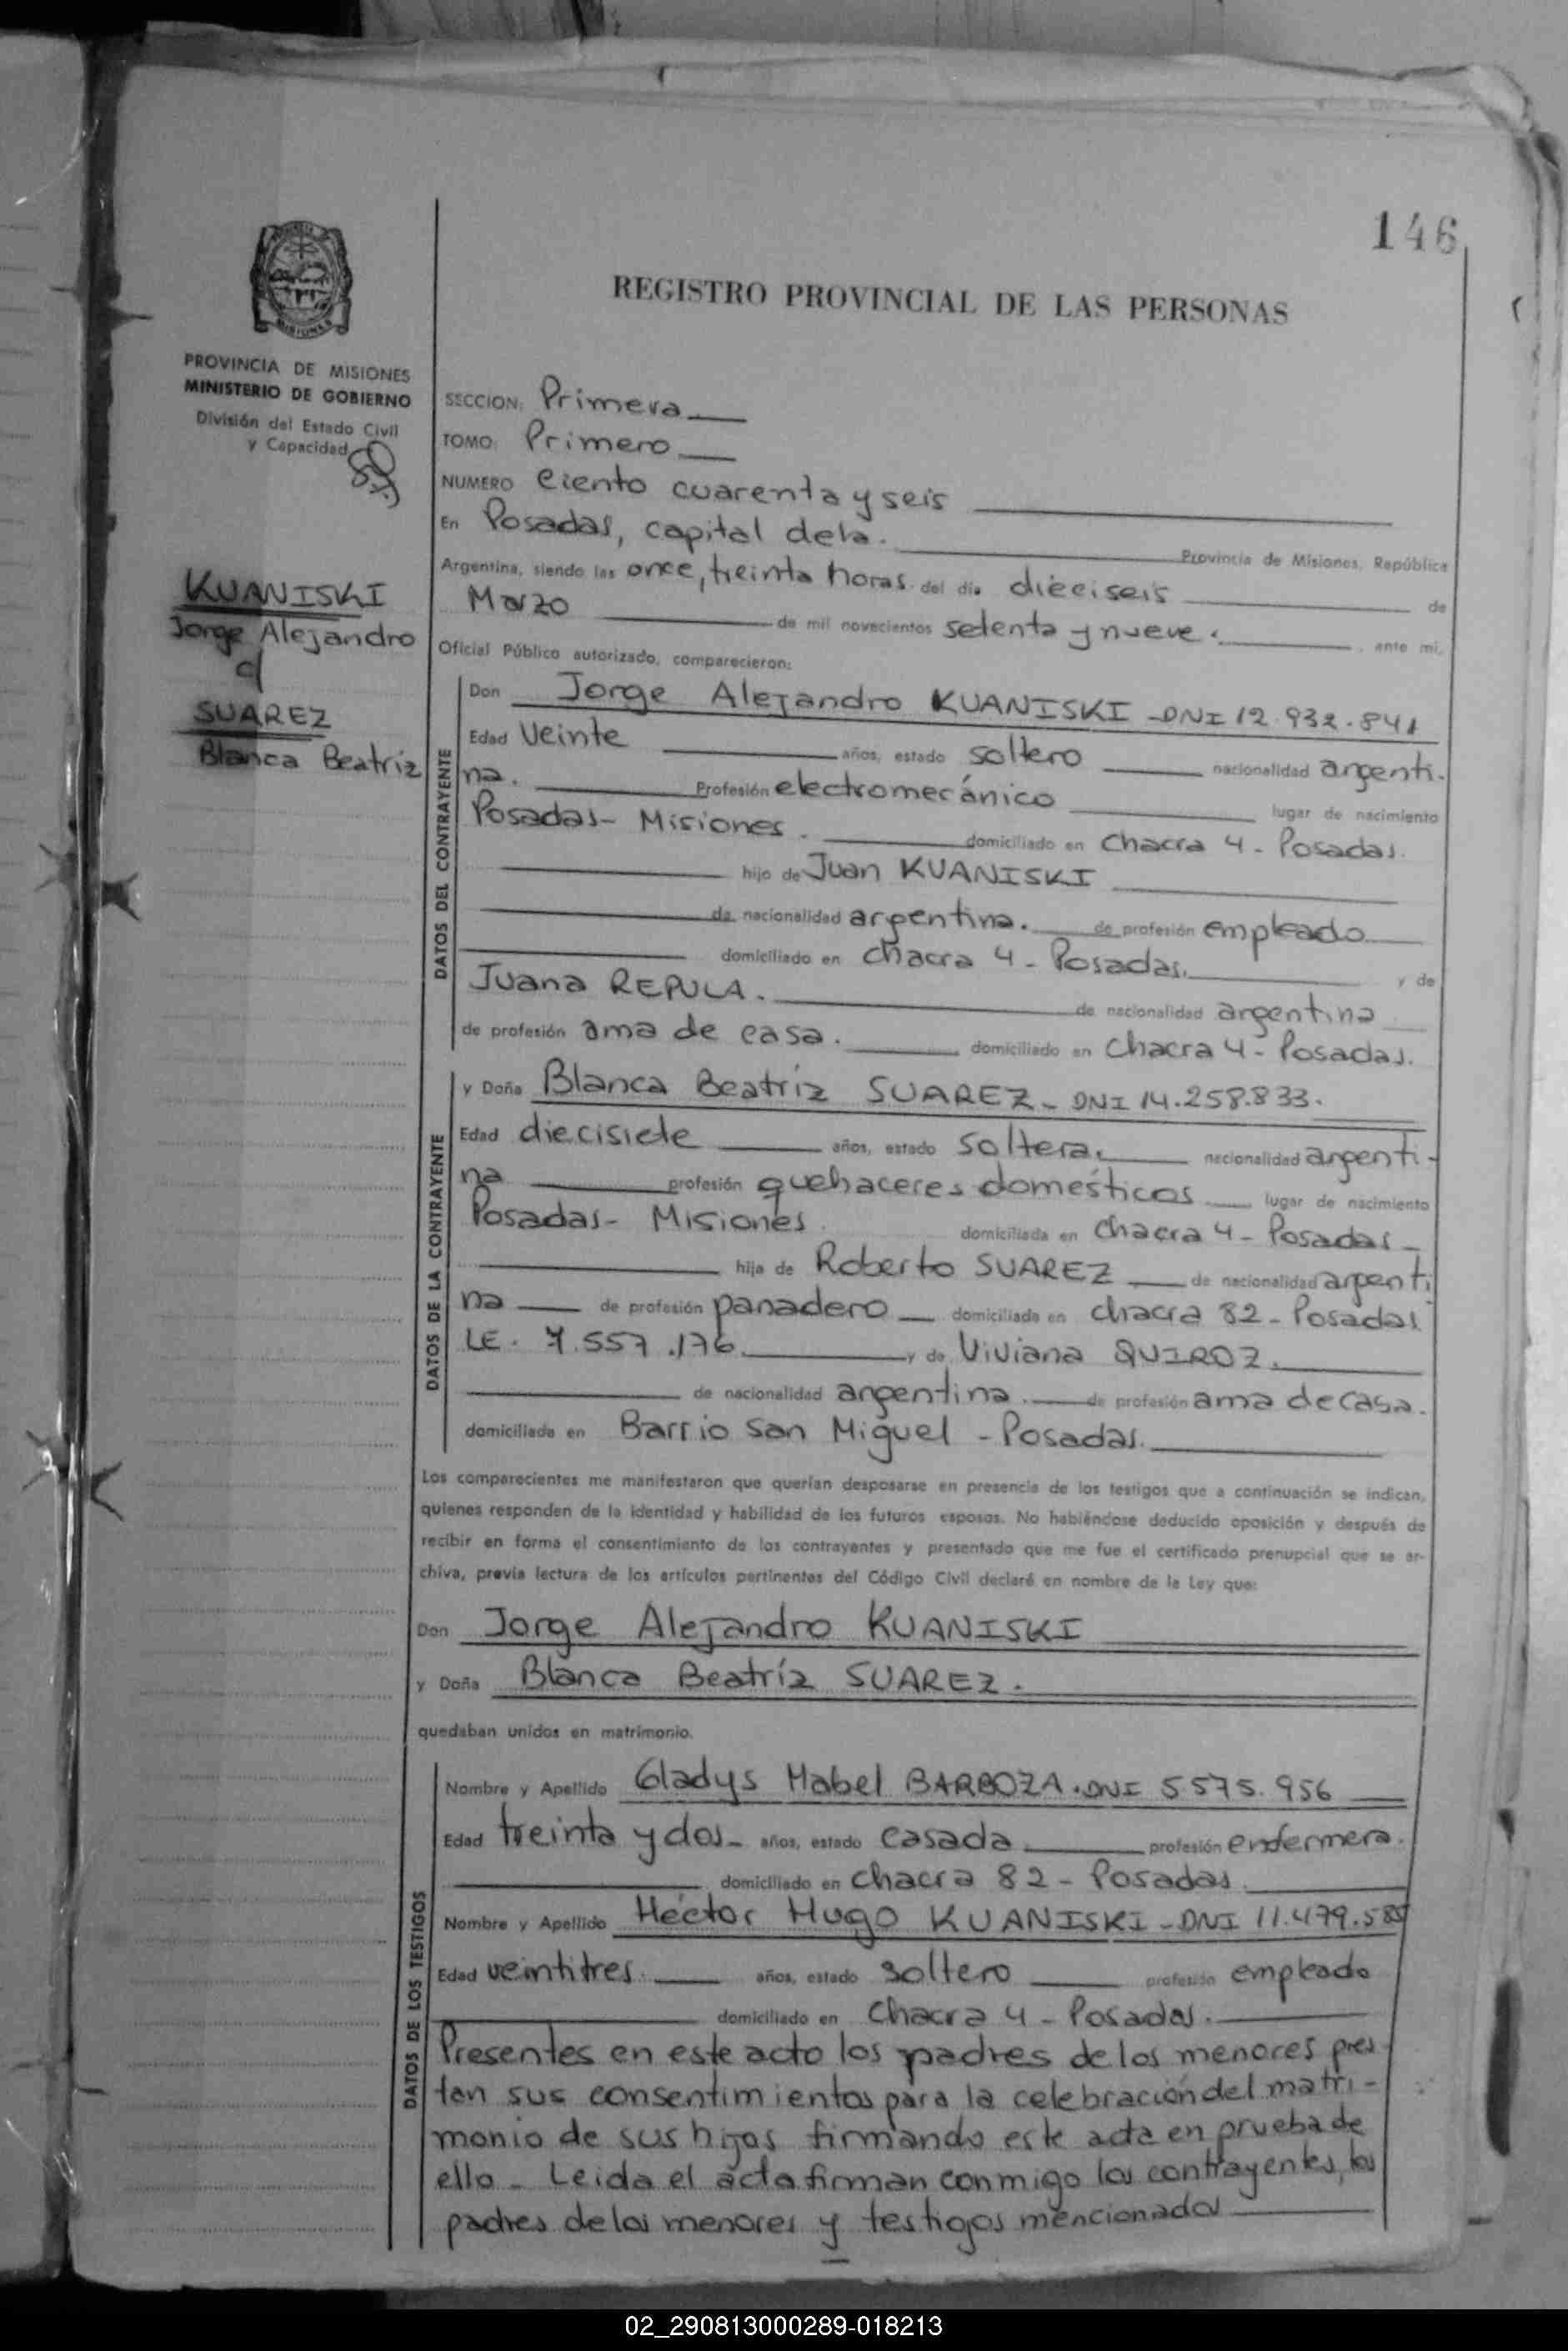 146
REGISTRO PROVINCIAL DE LAS PERSONAS
MISIONES
PROVINCIA DE MISIONES
MINISTERIO DE GOBIERNO
División del Estado Civil
y Capacidad
KUANISKI
Jorge Alejandro
c/
SUAREZ
Blanca Beatriz
SECCION: Primera
TOMO: Primero
NUMERO Ciento cuarenta y seis
En Posadas, capital de la. Provincia de Misiones, República
Argentina, siendo las once, treinta horas del día dieciseis de
Marzo de mil novecientos setenta y nueve. , ante mí,
Oficial Público autorizado, comparecieron:
DATOS DEL CONTRAYENTE
Don Jorge Alejandro KUANISKI - DNI 12.932.841
Edad Veinte años, estado soltero nacionalidad argenti-
na. Profesión electromecánico lugar de nacimiento
Posadas- Misiones. domiciliado en Chacra 4 - Posadas.
hijo de Juan KUANISKI
de nacionalidad argentina. de profesión empleado
domiciliado en chacra 4 - Posadas. y de
Juana REPULA. de nacionalidad argentina
de profesión ama de casa. domiciliado en Chacra 4 - Posadas.
DATOS DE LA CONTRAYENTE
y Doña Blanca Beatríz SUAREZ - DNI 14.258.833.
Edad diecisiete años, estado soltera. nacionalidad argenti-
na profesión quehaceres domésticos lugar de nacimiento
Posadas- Misiones. domiciliada en Chacra 4 - Posadas -
hija de Roberto SUAREZ de nacionalidad argenti
na de profesión panadero domiciliada en chacra 82 - Posadas
LE. 7.557.176. y de Viviana QUIROZ.
de nacionalidad argentina. de profesión ama de casa.
domiciliada en Barrio San Miguel - Posadas.
Los comparecientes me manifestaron que querían desposarse en presencia de los testigos que a continuación se indican,
quienes responden de la identidad y habilidad de los futuros esposos. No habiéndose deducido oposición y después de
recibir en forma el consentimiento de los contrayentes y presentado que me fue el certificado prenupcial que se ar-
chiva, previa lectura de los artículos pertinentes del Código Civil declaré en nombre de la Ley que:
Don Jorge Alejandro KUANISKI
y Doña Blanca Beatríz SUAREZ.
quedaban unidos en matrimonio.
DATOS DE LOS TESTIGOS
Nombre y Apellido Gladys Mabel BARBOZA. DNI 5575.956
Edad treinta y dos - años, estado casada profesión enfermera.
domiciliado en chacra 82 - Posadas.
Nombre y Apellido Héctor Hugo KUANISKI - DNI 11.479.585
Edad veintitres. años, estado soltero profesión empleado
domiciliado en Chacra 4 - Posadas.
Presentes en este acto los padres de los menores pres-
tan sus consentimientos para la celebración del matri-
monio de sus hijos firmando este acta en prueba de
ello - Leida el acta firman conmigo los contrayentes, los
padres de los menores y testigos mencionados
02_290813000289-018213